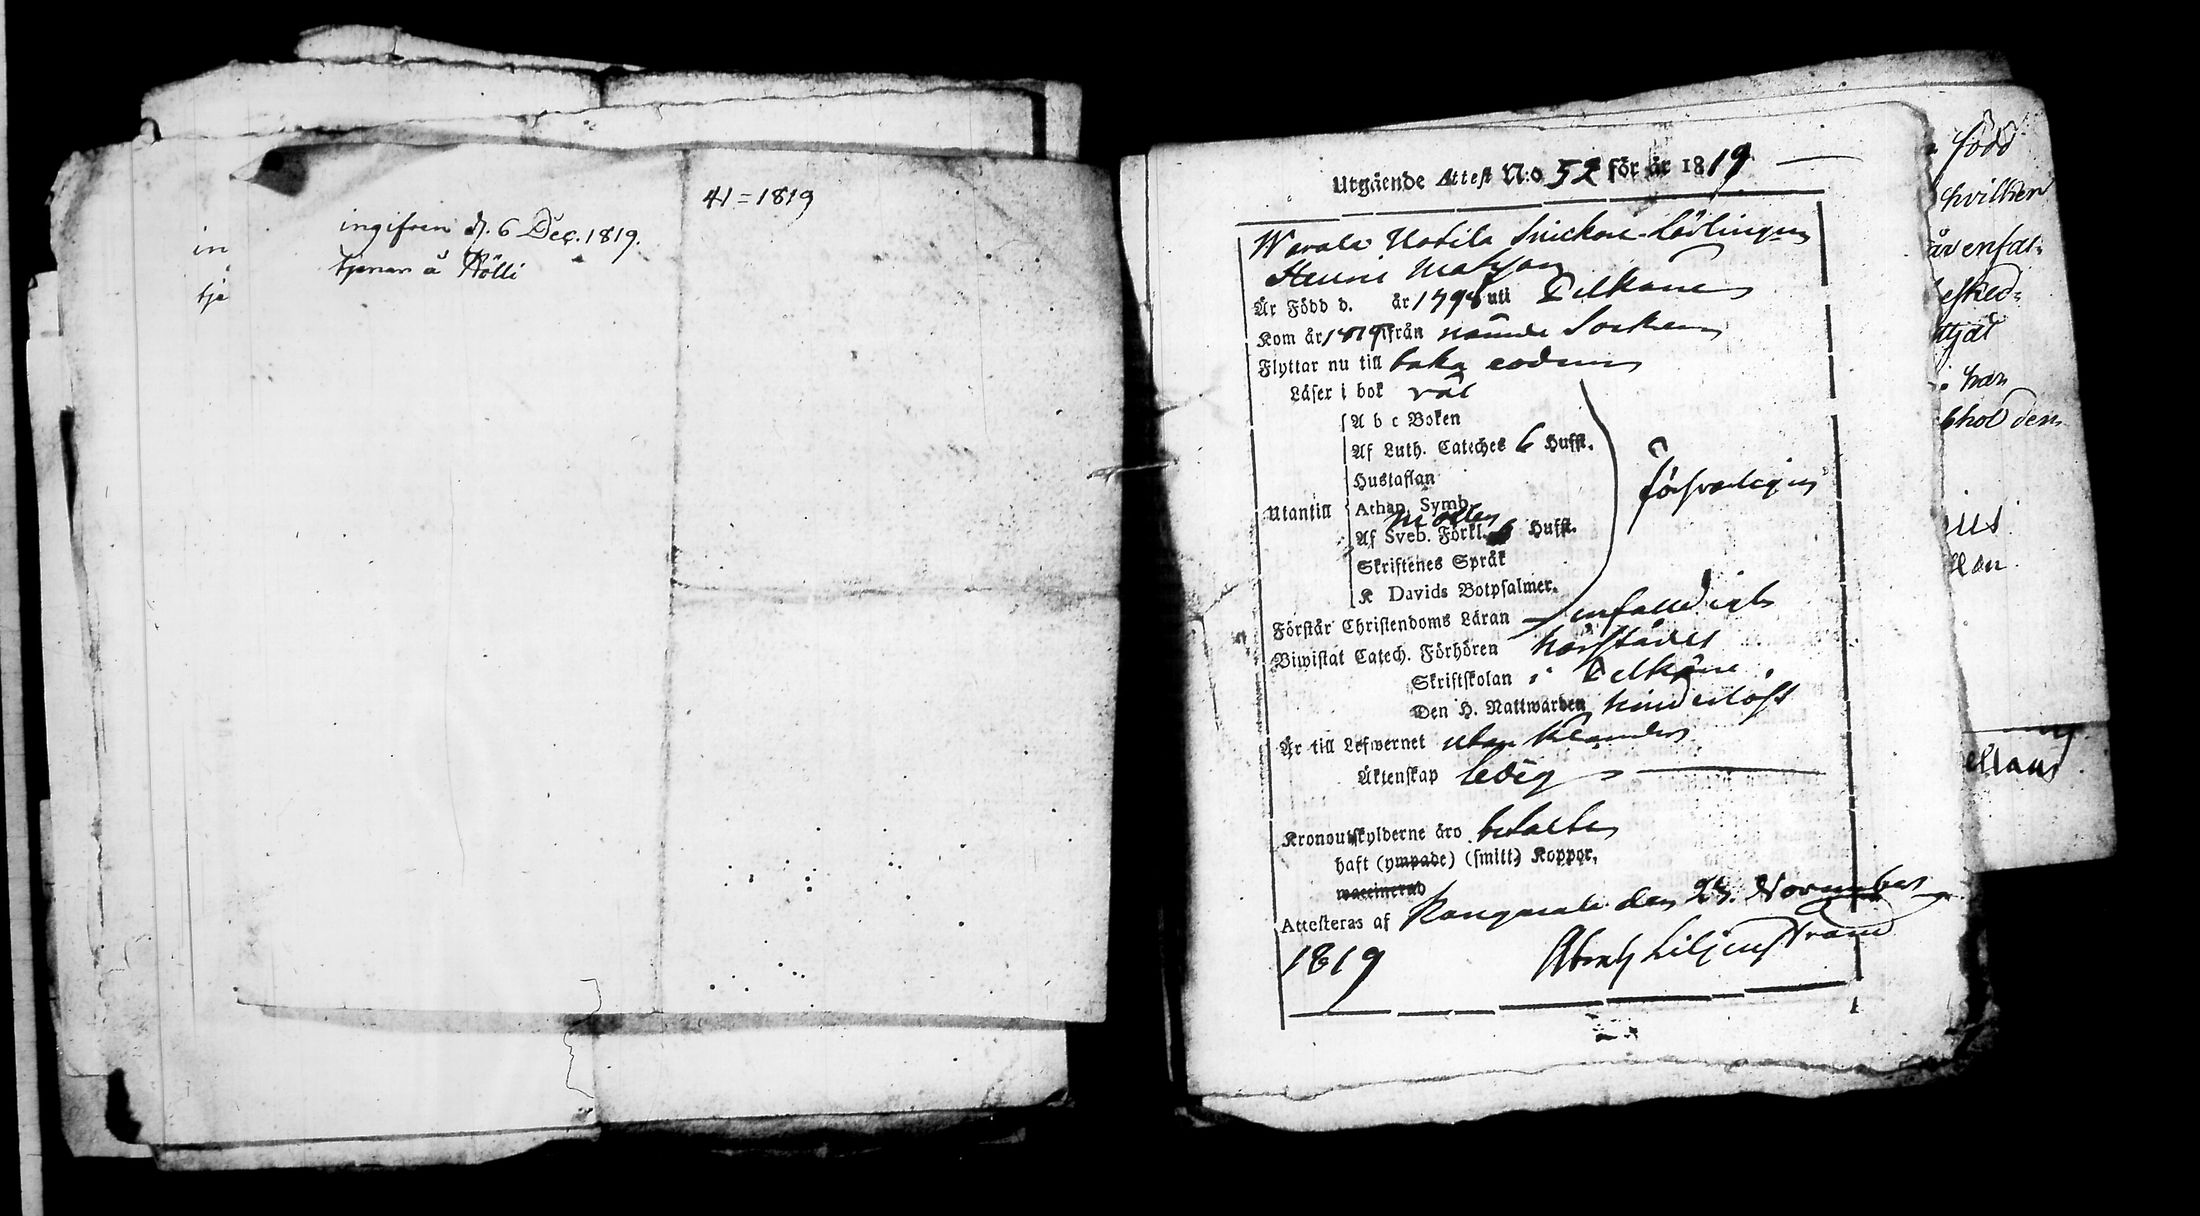 41 = 1819
ingifven d. 6 Dec. 1819.
tjenar å Hölli
in
tje
Utgående Attest N:o 52 för år 1819
Wavala Uotila Snickare Lärlingen
Henric Matsson
Är Född d. år 1798 uti Pelkäne
Kom år 1819 ifrån nämde Socken
Flyttar nu till baka eodem
Läser i bok väl
A b c Boken
Af Luth. Cateches 6 Hufst.
Hustaflan
Utantill Athan. Symb.
Af Sveb. Förkl. 6 Hufst.
Skriftenes Språk
K Davids Botpsalmer.
försvarligen
Förstår Christendoms Läran enfalldigt
Biwistat Catech. Förhören
Skriftskolan i Pelkäne
Den H. Nattwarden hinderlöst
Är till Lefwernet utan klander
Äktenskap ledig
Kronoutskylderne äro betalte
haft (ympade) (smitt) Koppor.
waccinerad
Attesteras af Kangasala den 23. November
1819 Abrah Liljenstrand
född
hvilken
har